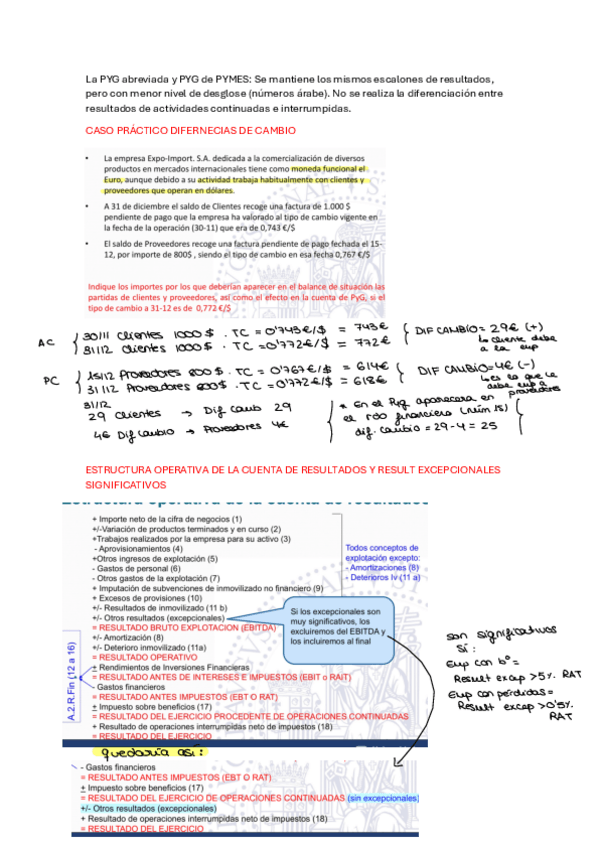 La PYG abreviada y PYG de PYMES: Se mantiene los mismos escalones de resultados,
pero con menor nivel de desglose (números árabe). No se realiza la diferenciación entre
resultados de actividades continuadas e interrumpidas.
CASO PRÁCTICO DIFERNECIAS DE CAMBIO
• La empresa Expo-Import. S.A. dedicada a la comercialización de diversos
productos en mercados internacionales tiene como moneda funcional el
Euro, aunque debido a su actividad trabaja habitualmente con clientes y
proveedores que operan en dólares.
• A 31 de diciembre el saldo de Clientes recoge una factura de 1.000 $
pendiente de pago que la empresa ha valorado al tipo de cambio vigente en
la fecha de la operación (30-11) que era de 0,743 €/$
• El saldo de Proveedores recoge una factura pendiente de pago fechada el 15-
12, por importe de 800$ , siendo el tipo de cambio en esa fecha 0,767 €/$
Indique los importes por los que deberían aparecer en el balance de situación las
partidas de clientes y proveedores, así como el efecto en la cuenta de PyG, si el
tipo de cambio a 31-12 es de 0,772 €/$
AC { 30/11 Clientes 1000$ · TC = 0'743€/$ = 743€ { DIF CAMBIO = 29€ (+)
31/12 Clientes 1000$ · TC = 0'772€/$ = 772€ Lo cliente debe
a la eup
PC { 15/12 Proveedores 800$ · TC = 0'767€/$ = 614€ { DIF CAMBIO=4€ (-)
31/12 Proveedores 800$ · TC = 0'772€/$ = 618€ Lo es lo que le
debe eup a
proveedores
31/12
29 Clientes → Dif Camb 29
4€ Dif Cambio → Proveedores 4€
* En el PyG aparecera en
el rdo financiero (núm 15)
dif. cambio = 29 - 4 = 25
ESTRUCTURA OPERATIVA DE LA CUENTA DE RESULTADOS Y RESULT EXCEPCIONALES
SIGNIFICATIVOS
Estructura operativa de la cuenta de resultados
+ Importe neto de la cifra de negocios (1)
+/-Variación de productos terminados y en curso (2)
+Trabajos realizados por la empresa para su activo (3)
- Aprovisionamientos (4)
+Otros ingresos de explotación (5)
- Gastos de personal (6)
- Otros gastos de la explotación (7)
+ Imputación de subvenciones de inmovilizado no financiero (9)
+ Excesos de provisiones (10)
+/- Resultados de inmovilizado (11 b)
+/- Otros resultados (excepcionales)
= RESULTADO BRUTO EXPLOTACION (EBITDA)
+/- Amortización (8)
+/- Deterioro inmovilizado (11a)
= RESULTADO OPERATIVO
+ Rendimientos de Inversiones Financieras
= RESULTADO ANTES DE INTERESES E IMPUESTOS (EBIT o RAIT)
- Gastos financieros
= RESULTADO ANTES IMPUESTOS (EBT O RAT)
+ Impuesto sobre beneficios (17)
= RESULTADO DEL EJERCICIO PROCEDENTE DE OPERACIONES CONTINUADAS
+ Resultado de operaciones interrumpidas neto de impuestos (18)
= RESULTADO DEL EJERCICIO
A.2.R.Fin (12 a 16)
Todos conceptos de
explotación excepto:
- Amortizaciones (8)
- Deterioros Iv (11 a)
Si los excepcionales son
muy significativos, los
excluiremos del EBITDA y
los incluiremos al final
son significativos
si:
Eup con bº =
Result excep >5% RAT
Eup con pérdidas =
Result excep >0'5%
RAT
quedaría así:
- Gastos financieros
= RESULTADO ANTES IMPUESTOS (EBT O RAT)
+ Impuesto sobre beneficios (17)
= RESULTADO DEL EJERCICIO DE OPERACIONES CONTINUADAS (sin excepcionales)
+/- Otros resultados (excepcionales)
+ Resultado de operaciones interrumpidas neto de impuestos (18)
= RESULTADO DEL EJERCICIO